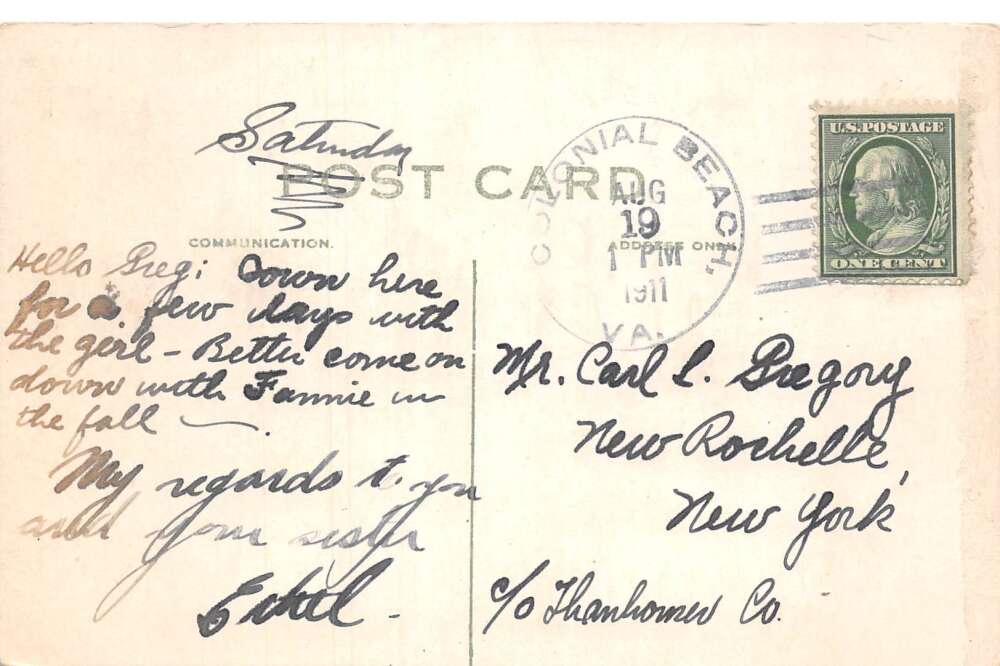 Saturday
POST CARD
COLONIAL BEACH, VA.
AUG
19
1 PM
1911
U.S. POSTAGE
ONE CENT
COMMUNICATION.
ADDRESS ONLY.
Hello Greg; Down here
for a few days with
the girl - Better come on
down with Fannie in
the fall —.
My regards to you
and your sister
Ethel -
Mr. Carl L. Gregory
New Rochelle,
New York
c/o Thanhouser Co.